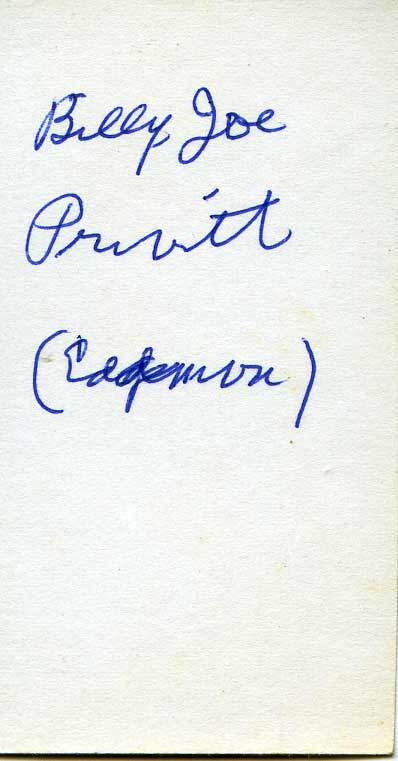 Billy Joe
Privitt
(Edgemon)